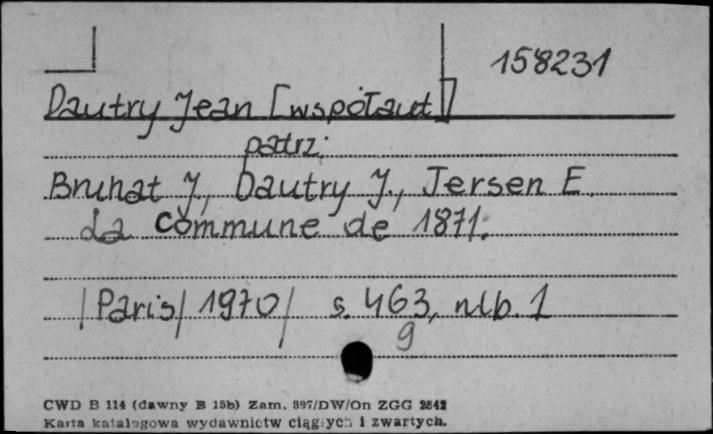 158231
Dautry Jean [współaut]
patrz:
Bruhat J., Dautry J., Tersen E.
La Commune de 1871.
/Paris/ 1970/ s. 463, nlb. 1
9
CWD B 114 (dawny B 15b) Zam. 897/DW/On ZGG 2542
Karta katalogowa wydawnictw ciągłych i zwartych.